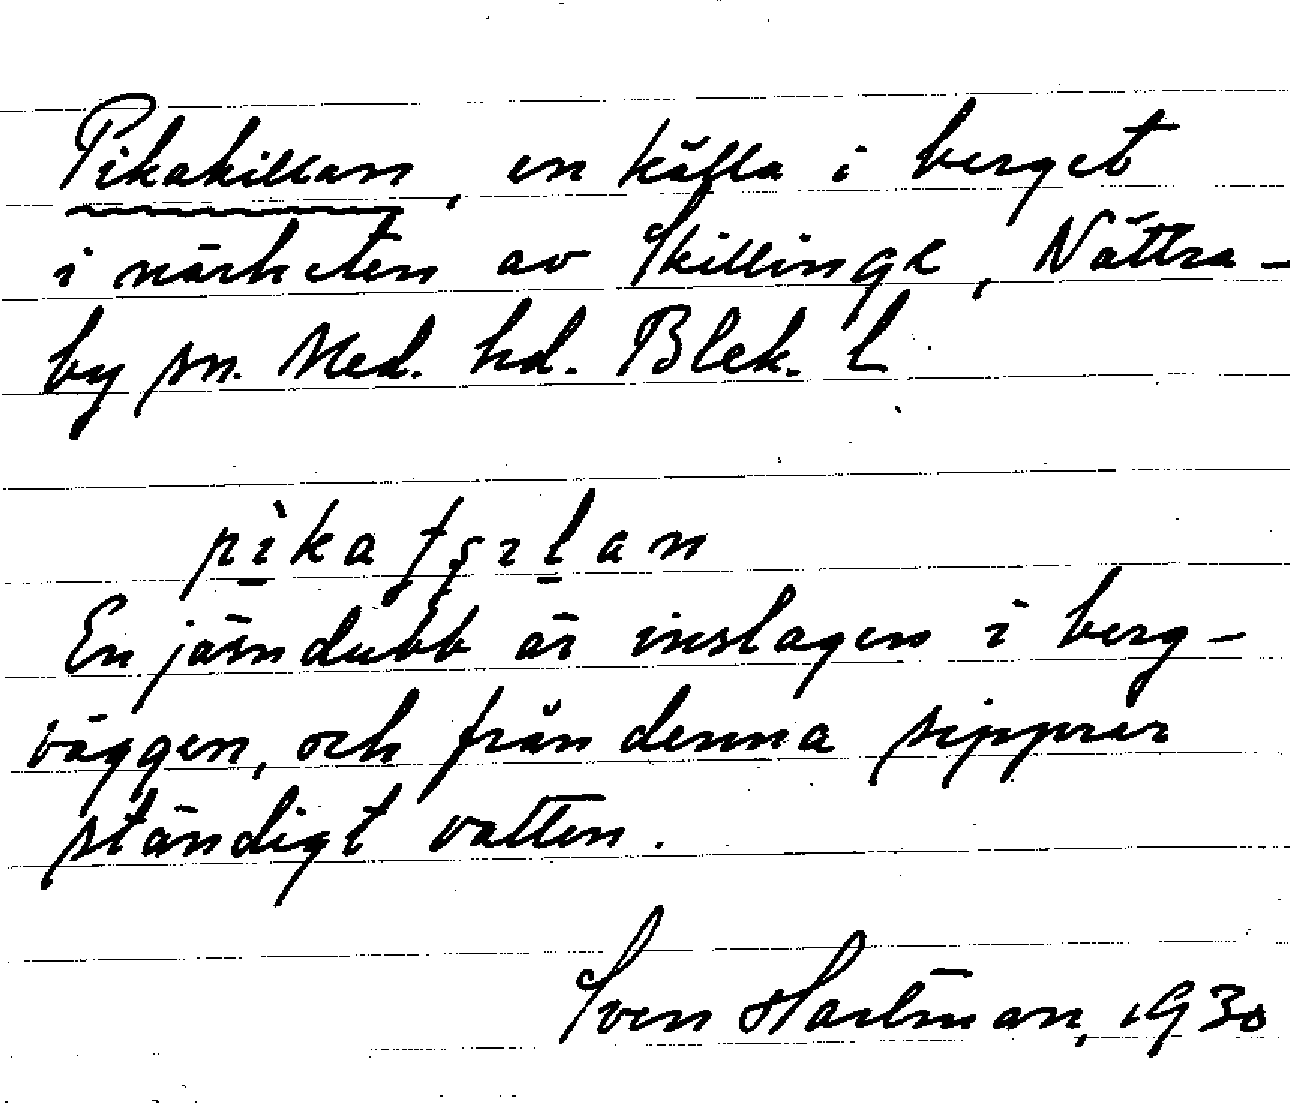 Pikakillan, en källa i berget
i närheten av Skillinge, Nättra-
by sn. Med. hd. Blek. L
En järndubb är inslagen i berg-
väggen, och från denna sipprar
ständigt vatten.
Sven Hartman, 1930